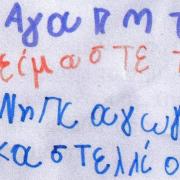 Αγαπη τ
είμαστε τ
Νηπιαγωγ
καστελλίο